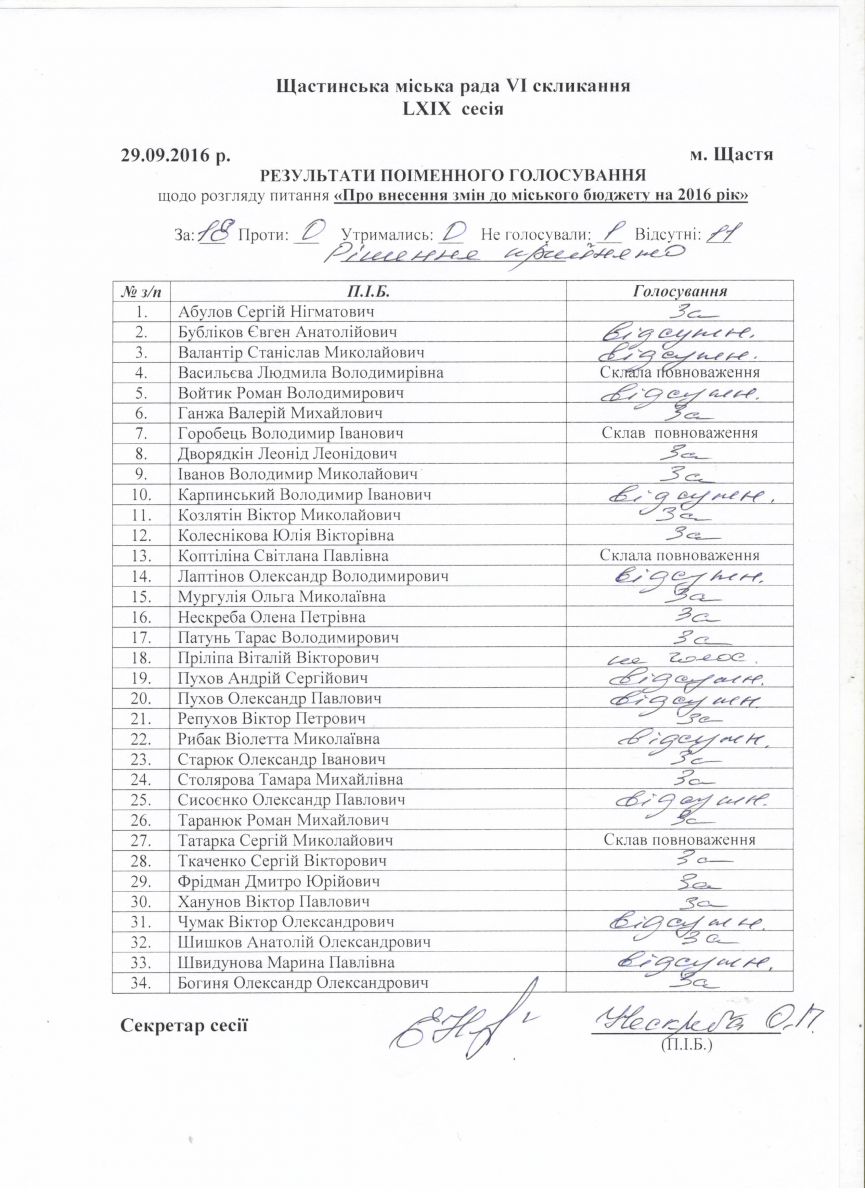 Щастинська міська рада VI скликання
LXIX сесія
29.09.2016 р. м. Щастя
РЕЗУЛЬТАТИ ПОІМЕННОГО ГОЛОСУВАННЯ
щодо розгляду питання «Про внесення змін до міського бюджету на 2016 рік»
За: 18 Проти: 0 Утримались: 0 Не голосували: 1 Відсутні: 11
Рішення прийнято
№ з/п П.І.Б. Голосування
1. Абулов Сергій Нігматович За
2. Бубліков Євген Анатолійович відсутн.
3. Валантір Станіслав Миколайович відсутн.
4. Васильєва Людмила Володимирівна Склала повноваження
5. Войтик Роман Володимирович відсутн.
6. Ганжа Валерій Михайлович За
7. Горобець Володимир Іванович Склав повноваження
8. Дворядкін Леонід Леонідович За
9. Іванов Володимир Миколайович За
10. Карпинський Володимир Іванович відсутн.
11. Козлятін Віктор Миколайович За
12. Колеснікова Юлія Вікторівна За
13. Коптіліна Світлана Павлівна Склала повноваження
14. Лаптінов Олександр Володимирович відсутн.
15. Мургулія Ольга Миколаївна За
16. Нескреба Олена Петрівна За
17. Патунь Тарас Володимирович За
18. Пріліпа Віталій Вікторович не голос.
19. Пухов Андрій Сергійович відсутн.
20. Пухов Олександр Павлович відсутн.
21. Репухов Віктор Петрович За
22. Рибак Віолетта Миколаївна відсутн.
23. Старюк Олександр Іванович За
24. Столярова Тамара Михайлівна За
25. Сисоєнко Олександр Павлович відсутн.
26. Таранюк Роман Михайлович За
27. Татарка Сергій Миколайович Склав повноваження
28. Ткаченко Сергій Вікторович За
29. Фрідман Дмитро Юрійович За
30. Ханунов Віктор Павлович За
31. Чумак Віктор Олександрович відсутн.
32. Шишков Анатолій Олександрович За
33. Швидунова Марина Павлівна відсутн.
34. Богиня Олександр Олександрович За
Секретар сесії Нескреба О.П.
(П.І.Б.)